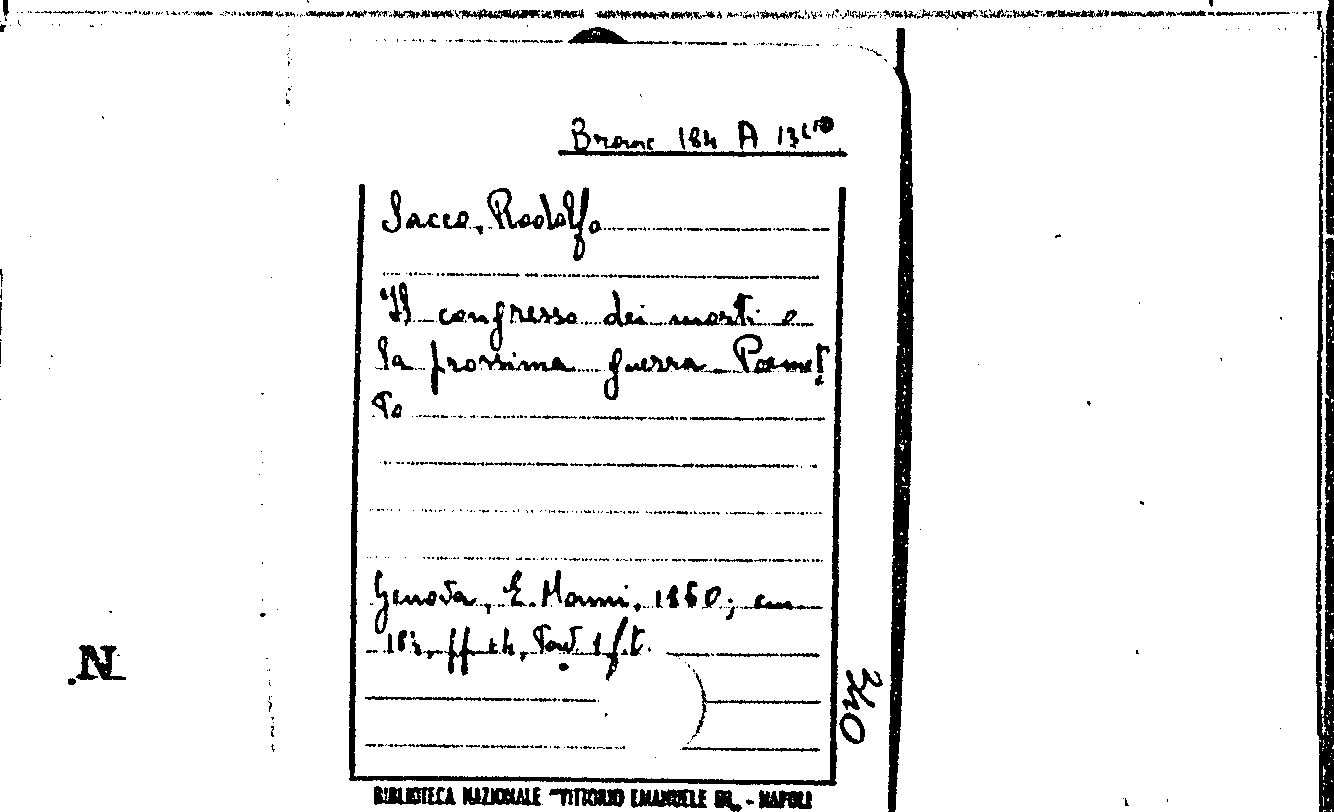 Branc 184 A 13
Sacco, Rodolfo
Il congresso dei morti e
la prossima guerra Poemet
to
Genova, E. Monni, 1860; cm
18, pp. 24, Tav. 1 f.t.
340
N
BIBLIOTECA NAZIONALE "VITTORIO EMANUELE III" - NAPOLI